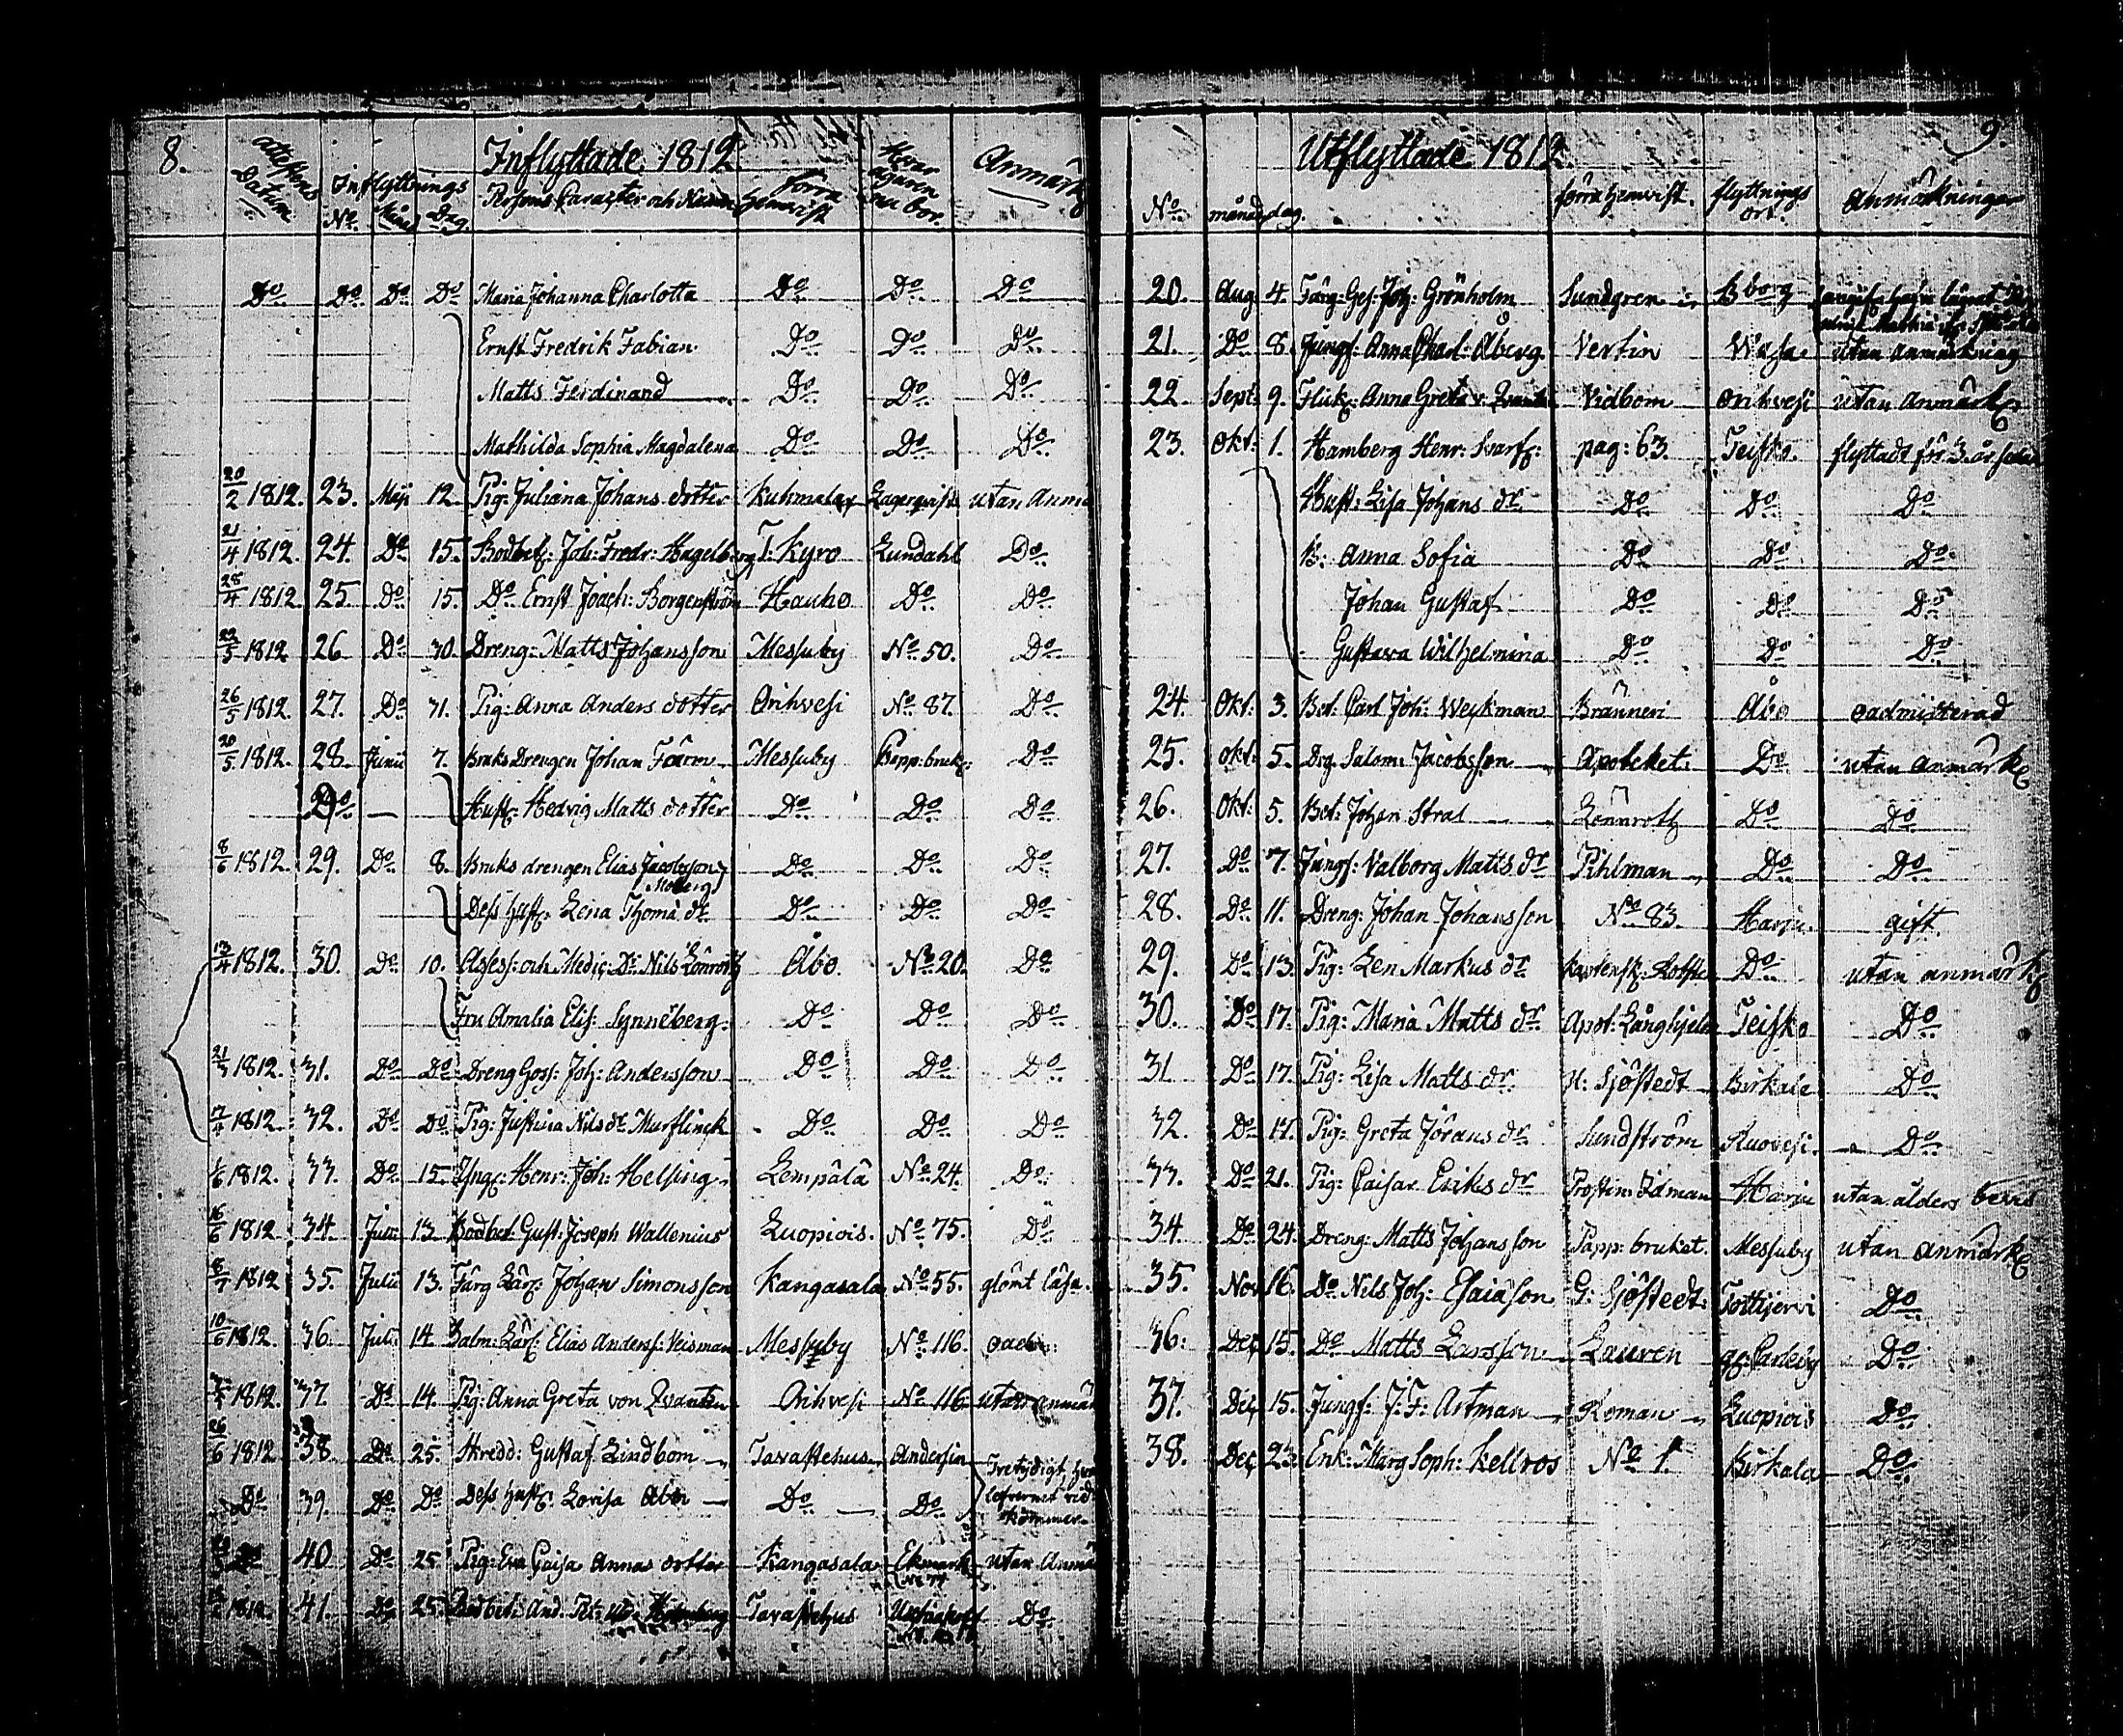 8. Inflyttade 1812.
attestens Datum Inflyttnings No. Mån. Dag. Persons Caracter och Namn förra Hemvist Hvar ägaren nu bor. Anmärk
Do Do Do Do Maria Johanna Charlotta Do Do Do
Ernst Fredrik Fabian Do Do Do
Matts Ferdinand Do Do Do
Mathilda Sophia Magdalena Do Do Do
20/2 1812. 23. Maji 12 Pig: Juliana Johans dotter Kuhmalax utan Anm
21/4 1812. 24. Do 15. Bodbetj: Joh: Fredr: Hagelberg T. Kyro Lundahl Do
28/4 1812. 25 Do 15. Do Ernst Joach: Borgenström Hauho Do Do
1812 26 Do 30. Dreng: Matts Johansson Messuby No 50. Do
26/5 1812. 27. Do 31. Pig: Anna Anders dotter Orihvesi No 87. Do
20/5 1812. 28. Junii 7. Bruks Drengen Johan Form Messuby Papp: bruk: Do
Do Hust: Hedvig Matts dotter Do Do Do
8/6 1812. 29. Do 8. Bruks drengen Elias Jacobsson Do Do Do
Moberg
Dess hust: Lena Thomæ dr Do Do Do
13/4 1812. 30. Do 10. Assess: och Medic: Dr: Nils Lönroth Åbo No 20. Do
Fru Amalia Elis: Synneberg. Do Do Do
1812. 31. Do Do Dreng Goss: Joh: Andersson Do Do Do
7/4 1812. 32. Do Do Pig: Justina Nils dr Murflinck Do Do Do
1/6 1812. 33. Do 15. Henr: Joh: Helsing Lempälä No 24. Do
16/6 1812 34. Juli: 13 Bodbet: Gust: Joseph Wallenius Luopiois. No 75. Do
8/7 1812 35. Julii 13. Färg Lärl: Johan Simonsson Kangasala No 55. glömt läsa.
10/6 1812. 36. Juli: 14 Lärl: Elias Anderss: Veisman Messuby No 116. oadm:
1812. 37. Do 14. Pig: Anna Greta von Qvanten Orihvesi No 116 utan anmär
26/6 1812 38. Do 25. Skredd: Gustaf Lindbom Tavastehus Andersin
Do 39. Do Do Dess hust: Lovisa Do Do
40 Do 25 Pig: Eva Caisa Annas dotter Kangasala Ekmark utan Anmä
1812. 41. Do 25. Bodbet: And. Pet: Tavastehus Do
Utflyttade 1812 9.
No. månad dag. förra hemvist. flyttnings ort. Anmärkningar
20. Aug 4. Färg: Ges: Joh: Grönholm Sundgren Bborg
21. Do 8. Jungf: Anna Charl: Åberg Vertin Wasa utan anmärkning
22. Sept: 9. Flick: Anna Greta v. Vidbom Orihvesi utan Anmärk
23. Okt: 1. Hamberg Henr: Svarf: pag: 63. Teisko. flyttadt för 3. år
Hust: Lisa Johans dr Do Do Do
B: Anna Sofia Do Do Do
Johan Gustaf Do Do Do
Gustava Wilhelmina Do Do Do
24. Okt: 3. Bet. Carl Joh: Weckman Bränneri Åbo oadmitterad
25. Okt: 5. Drg. Salom: Jacobsson Apoteket: Do utan anmärk
26. Okt: 5. Bet: Johan Stral Lönnroth Do Do
27. Do 7. Jungf: Valborg Matts dr Pihlman Do Do
28. Do 11. Dreng: Johan Johansson No 83. Harju gift
29. Do 13. Pig: Len Markus dr Do utan anmärk
30. Do 17. Pig: Maria Matts dr Apot: Långhjelm Teisko Do
31 Do 17. Pig: Lisa Matts dr H: Sjöstedt Birkala Do
32. Do 17. Pig: Greta Jörans dr Sundström Ruovesi. Do
33. Do 21. Pig: Caisa Eriks dr Prostin: Idman Harju utan ålders bevis
34. Do 24. Dreng: Matts Johansson Papp: bruket. Messuby utan Anmärk
35. Nov 16. Do Nils Joh: Esaiason G: Sjöstedt: Tottijervi Do
36: Dec 15. Do Matts Larsson Lauren g: Carleby Do
37. Dec 15. Jungf: J: F: Artman Roman Luopiois Do
38. Dec 23. Enk: Marg Soph: Kellros No 1 Birkala Do